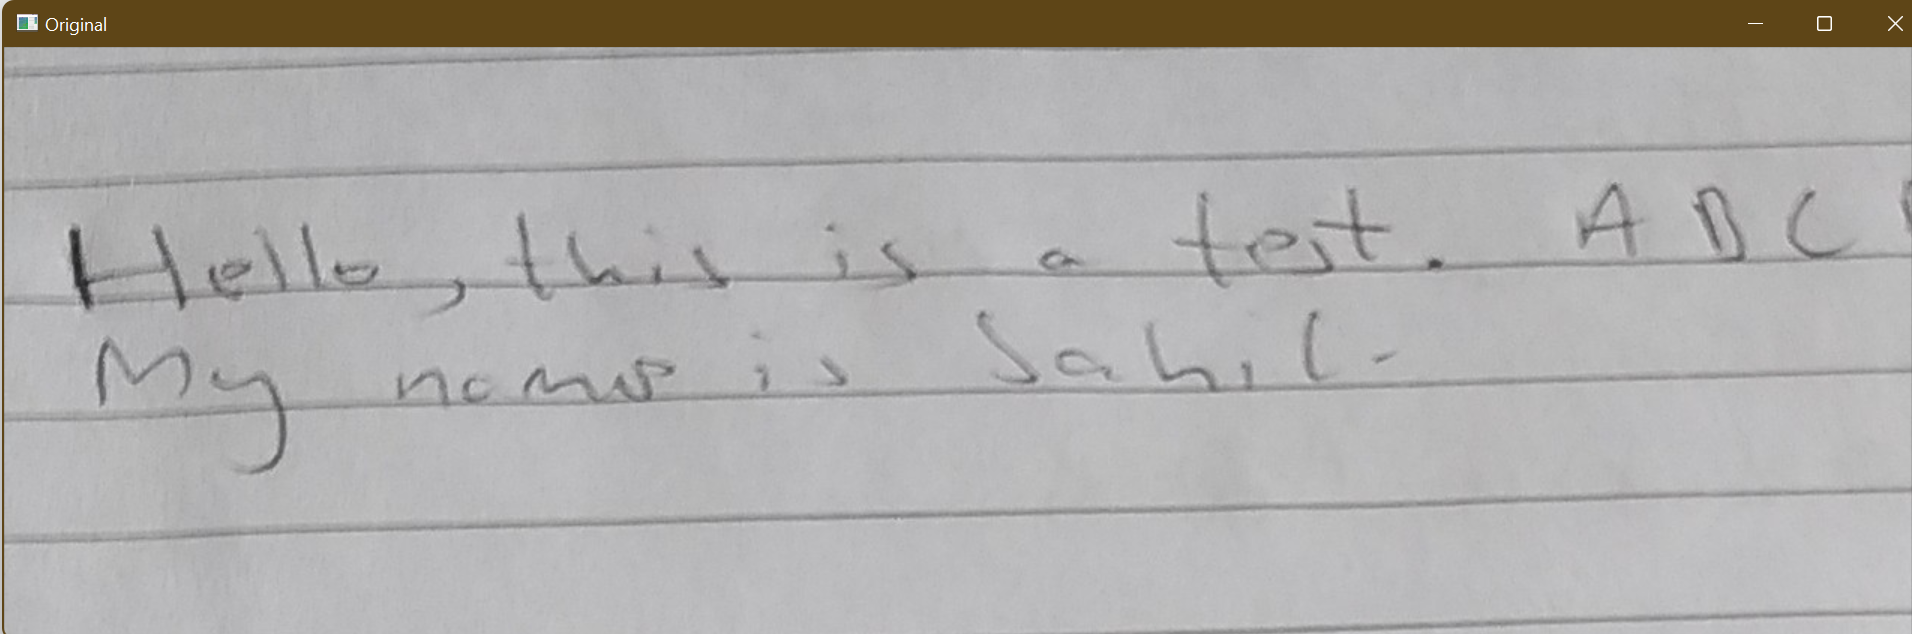 Original
Hello, this is a test. A B C
My name is Sahil.